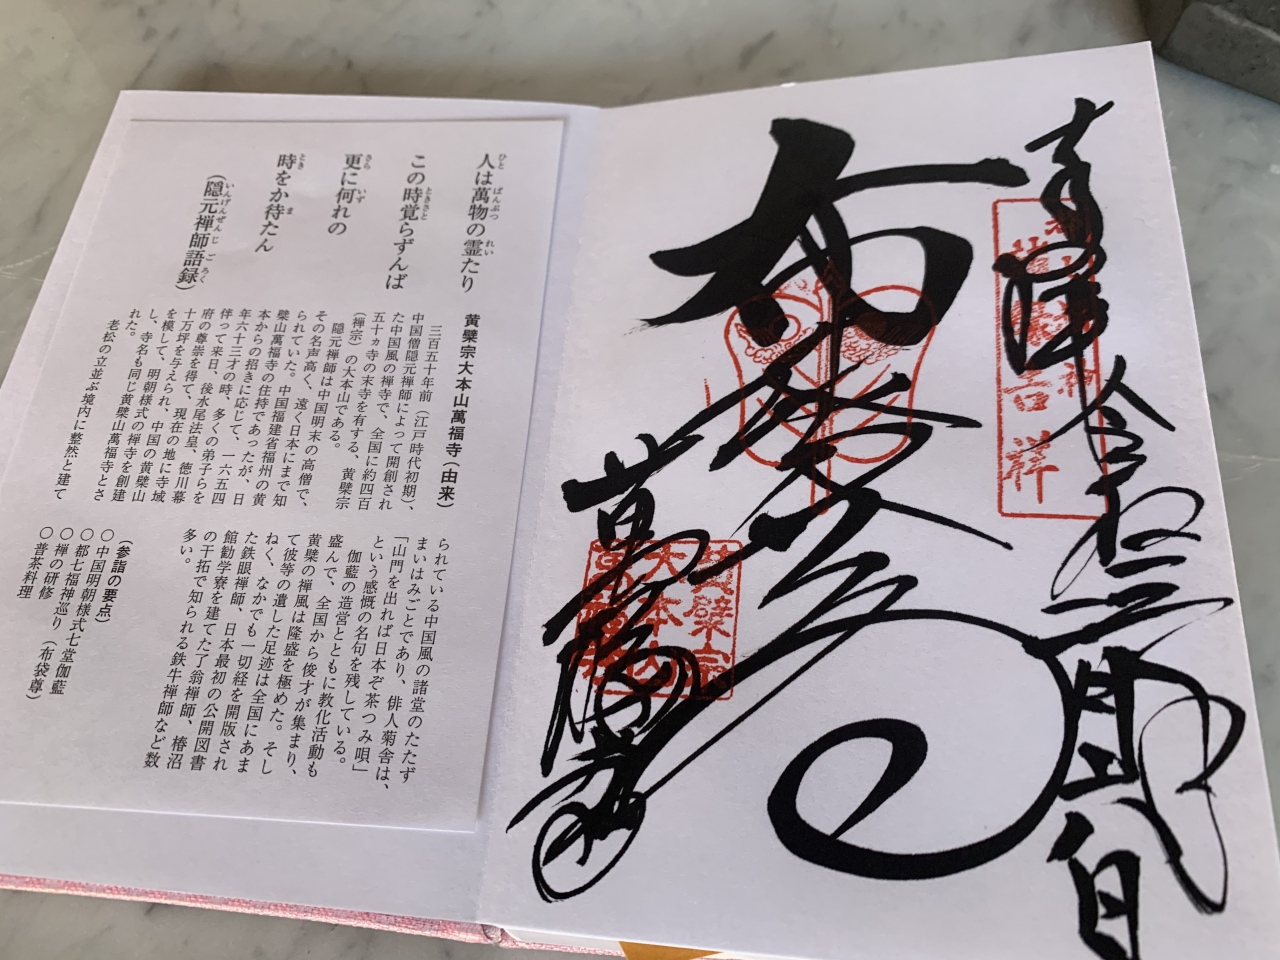 奉拝
令和三年
月
日
吉祥
布袋尊
黄檗宗
大本山
萬福寺
人は萬物の霊たり
この時覚らずんば
更に何れの
時をか待たん
(隠元禅師語録)
黄檗宗大本山萬福寺(由来)
三百五十年前(江戸時代初期)、
中国僧隠元禅師によって開創され
た中国風の禅寺で、全国に約四百
五十ヵ寺の末寺を有する、黄檗宗
(禅宗)の大本山である。
隠元禅師は中国明末の高僧で、
その名声高く、遠く日本にまで知
られていた。中国福建省福州の黄
檗山萬福寺の住持であったが、日
本からの招きに応じて、一六五四
年六十三才の時、多くの弟子らを
伴って来日、後水尾法皇、徳川幕
府の尊崇を得て、現在の地に寺域
十万坪を与えられ、中国の黄檗山
を模して、明朝様式の禅寺を創建
し、寺名も同じ黄檗山萬福寺とさ
れた。
老松の立並ぶ境内に整然と建て
られている中国風の諸堂のたたず
まいはみごとであり、俳人菊舎は、
「山門を出れば日本ぞ茶つみ唄」
という感慨の名句を残している。
伽藍の造営とともに教化活動も
盛んで、全国から俊才が集まり、
黄檗の禅風は隆盛を極めた。そし
て彼等の遺した足迹は全国にあま
ねく、なかでも一切経を開版され
た鉄眼禅師、日本最初の公開図書
館勧学寮を建てた了翁禅師、椿沼
の干拓で知られる鉄牛禅師など数
多い。
(参詣の要点)
○中国明朝様式七堂伽藍
○都七福神巡り(布袋尊)
○禅の研修
○普茶料理